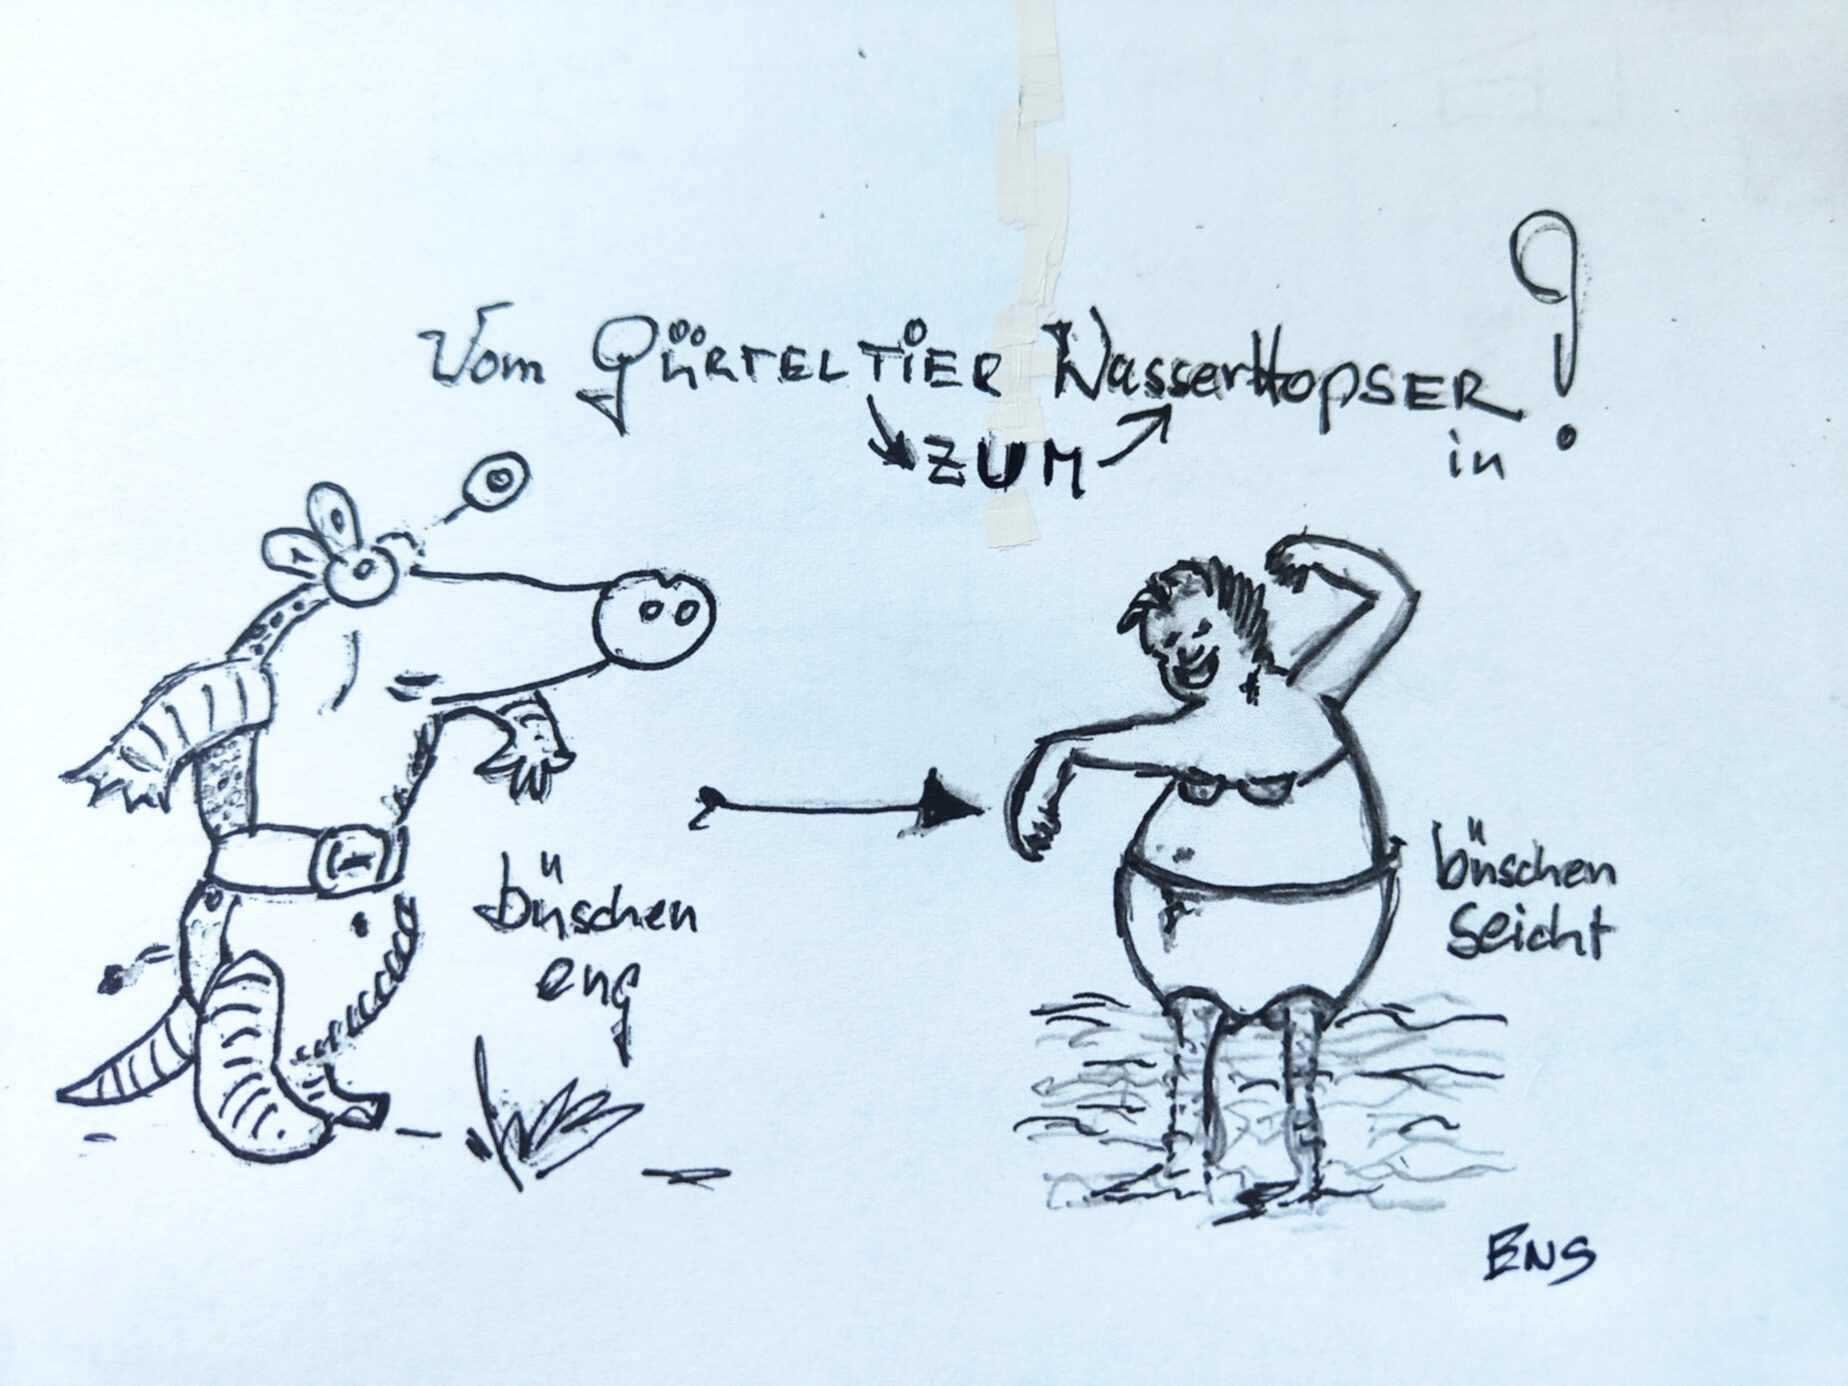 Vom GÜRTELTIER WasserHopsER!
ZUM
in
büschen
eng
büschen
seicht
ENS